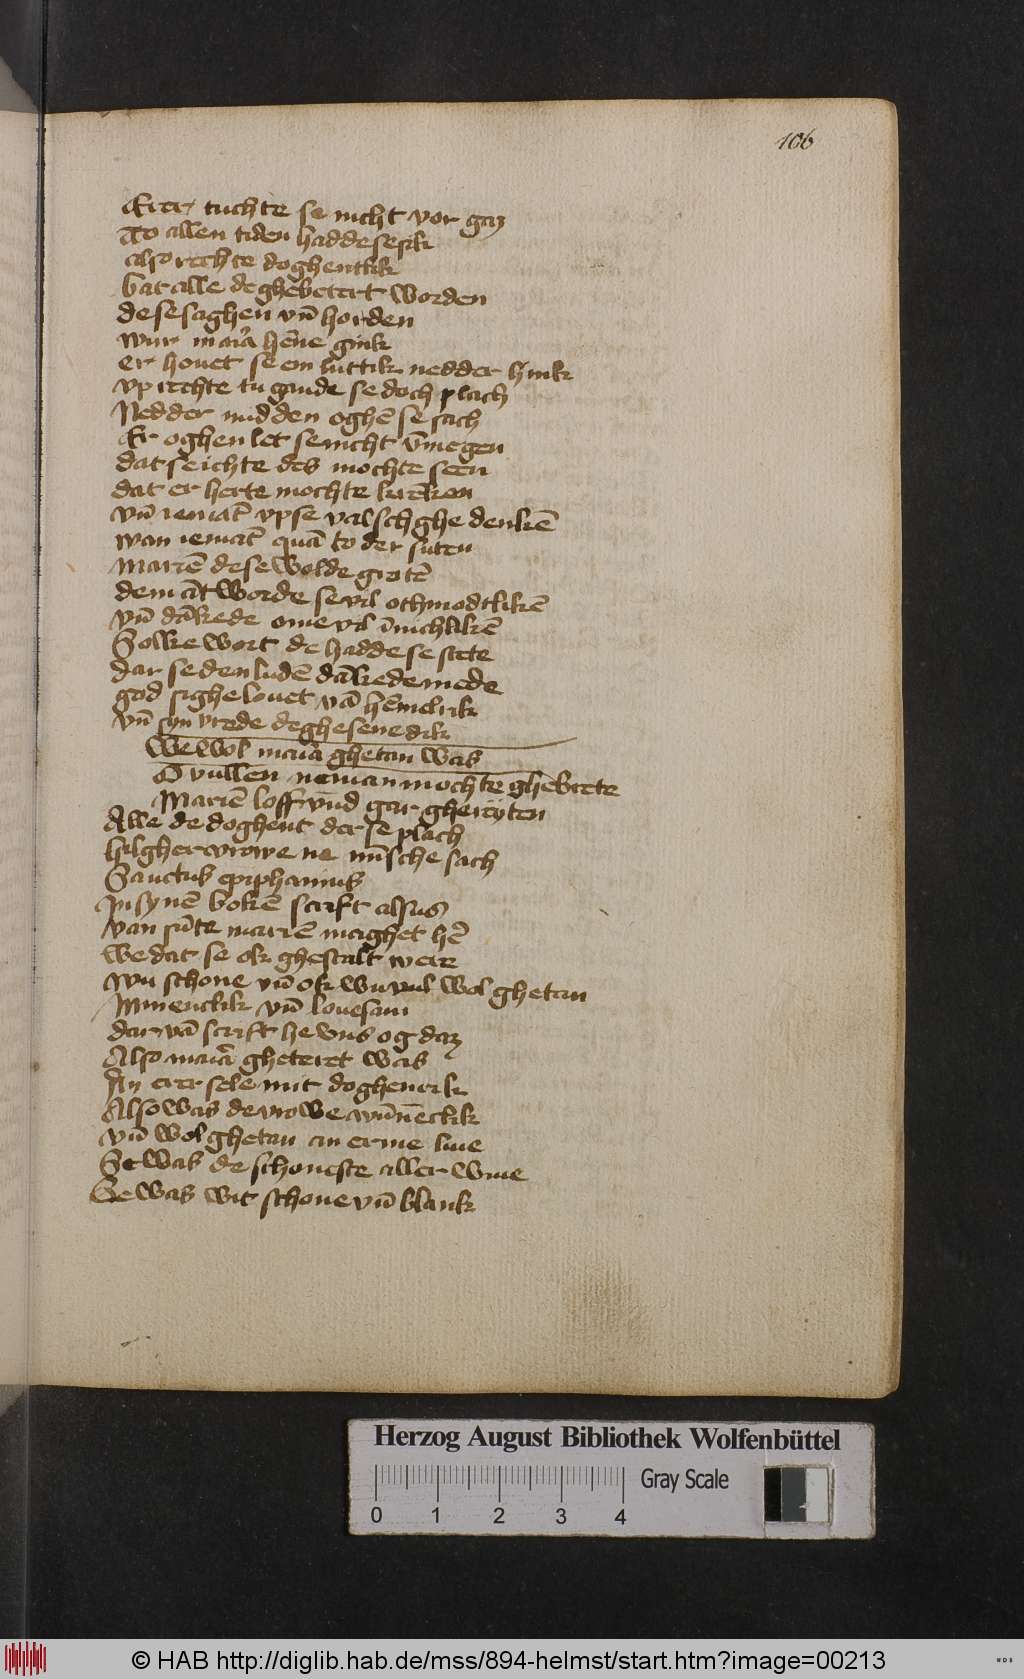 106
Erer tuchte se nicht vor gaz
To allen tiden hadde se sik
also rechte doghentlik
dat alle de ghebetert worden
de se saghen vn̄ horden
wur maria hēne gink
er houet se ein luttik nedder hink
vp rechte tu gande se doch plach
Nedder mid den oghē se sach
Er oghen let se nicht vmegen
dat se ichte des mochte seen
dat er herte mochte krēken
vn̄ iemāt vp se valsch ghedenkē
wan iemāt quā to der suten
Mariē de se wolde grotē
dem ātworde se vil othmodtlikē
vn̄ dākede ome vil īnichlikē
Solke wort de hadde se stete
dar se den ludē dākede mede
god si ghelouet vā hēmelrik
vn̄ syn vrede de ghesene dik
We wol maria ghetan was
O vullen nēman mochte ghebrete
Mariē loff vnd gar ghereyten
Alle de doghent der se plach
hilgher vrowe ne mīsche sach
Sanctus epiphanius
In synē bokē scrift alsus
van sūte mariē maghet hē
we dat se ok ghestalt were
wu schone vn̄ ok wu wal wol ghetan
Minentlik vn̄ louesam
dar vā scrift he vns og daz
Also maria gheteret was
An erer sele mit doghen rik
Also was de vrowe wūnēclik
vn̄ wol ghetan an erme liue
Se was de schoneste aller wiue
Se was wit schone vn̄ blank
Herzog August Bibliothek Wolfenbüttel
Gray Scale
0 1 2 3 4
© HAB http://diglib.hab.de/mss/894-helmst/start.htm?image=00213